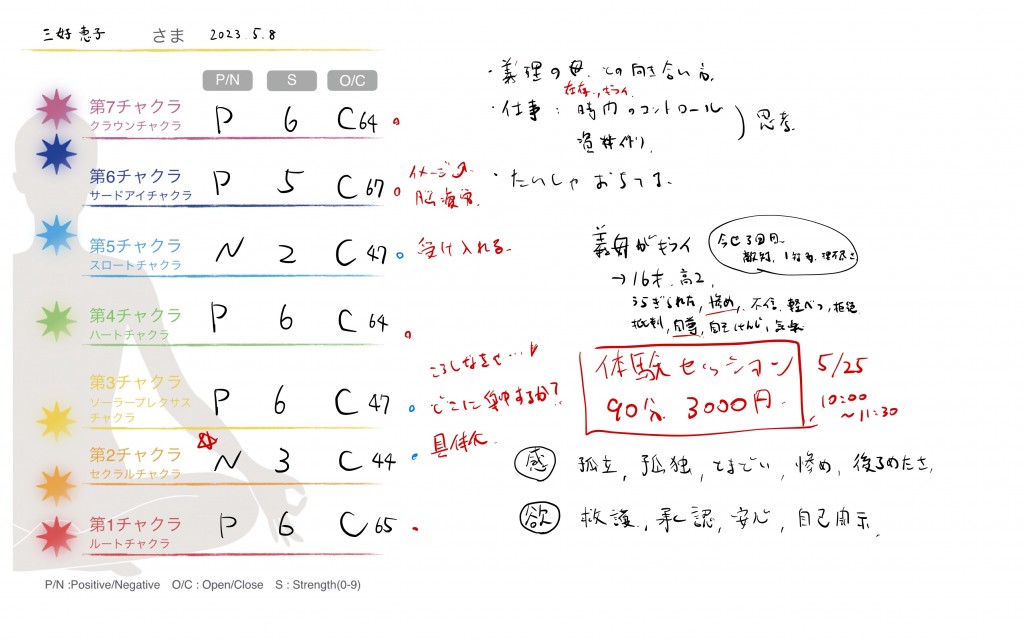 三好 恵子 さま 2023. 5. 8
P/N S O/C
第7チャクラ
クラウンチャクラ
P 6 C 64
第6チャクラ
サードアイチャクラ
P 5 C 67
イメージ
第5チャクラ
スロートチャクラ
N 2 C 47
受け入れる
第4チャクラ
ハートチャクラ
P 6 C 64
第3チャクラ
ソーラープレクサス
チャクラ
P 6 C 47
どこに集中するか?
具体化
第2チャクラ
セクラルチャクラ
N 3 C 44
第1チャクラ
ルートチャクラ
P 6 C 65
P/N :Positive/Negative O/C : Open/Close S : Strength(0-9)
・義理の母、との向き合い方、
・仕事 : 時内のコントロール
資料作り
思考
・たいしゃ おちてる
義母がキライ
今世3回目
→16才、高2、
うらぎられた, 惨め, 不信, 軽べつ, 拒絶
批判, 自尊, 自己けんお,
体験セッション
90分 3000円
5/25
10:00
~11:30
感 孤立, 孤独, とまどい, 惨め, 後ろめたさ,
欲 救護, 承認, 安心, 自己開示